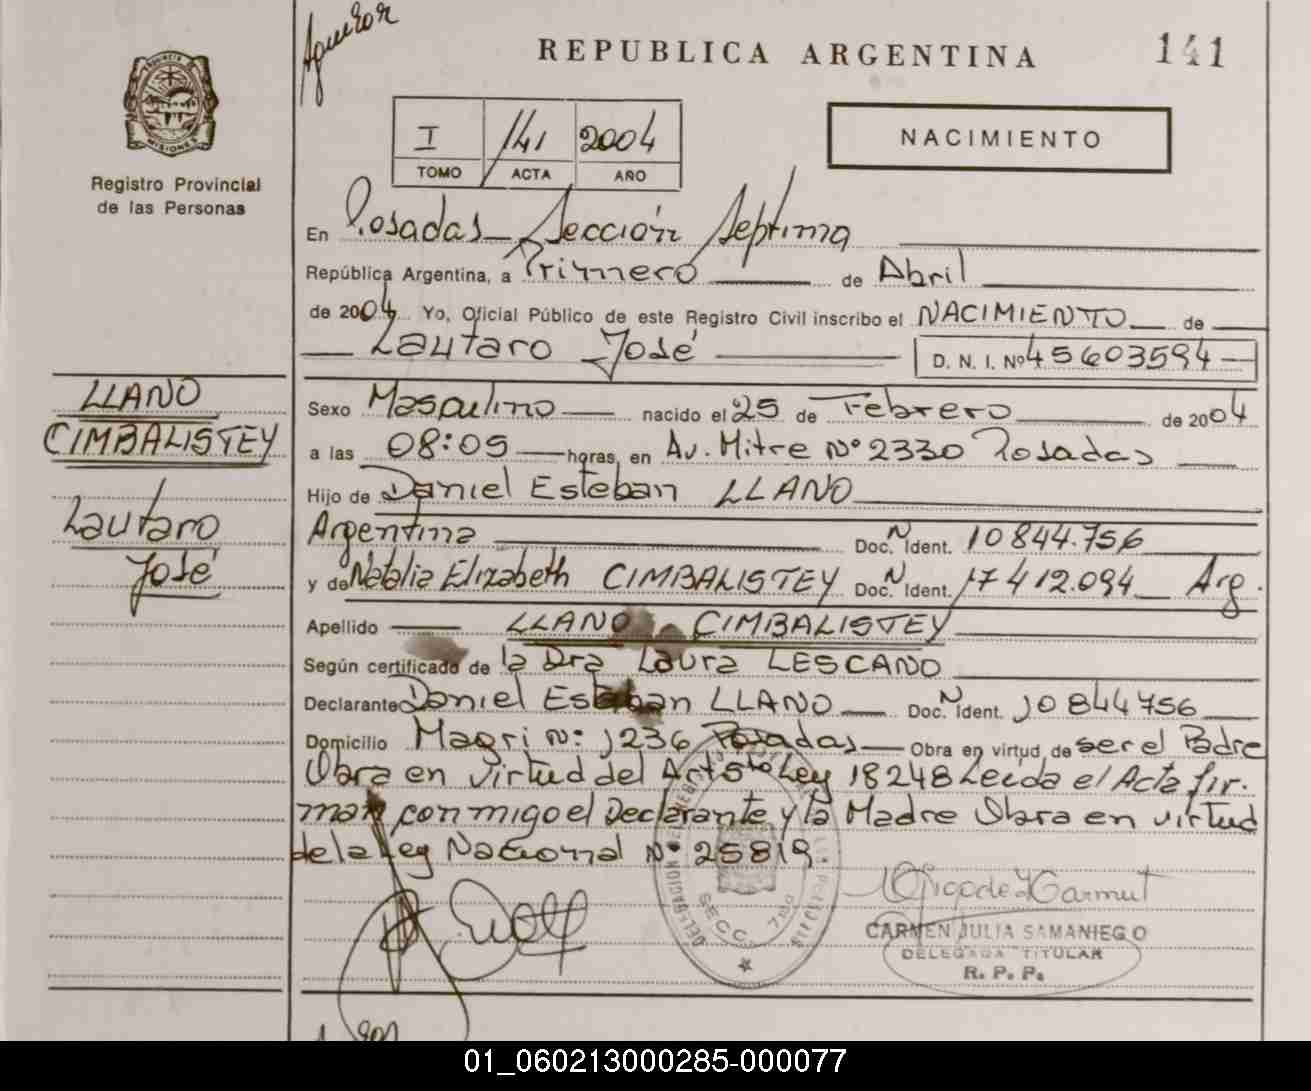 Aguilar
REPUBLICA ARGENTINA
141
PROVINCIA DE
MISIONES
Registro Provincial
de las Personas
I 141 2004
TOMO ACTA AÑO
NACIMIENTO
En Posadas Sección Septima
República Argentina, a Primero de Abril
de 2004 Yo, Oficial Público de este Registro Civil inscribo el NACIMIENTO de
Lautaro José D. N. I. Nº 45603594
LLANO
CIMBALISTEY
Lautaro
José
Sexo Masculino nacido el 25 de Febrero de 2004
a las 08:05 horas, en Av. Mitre Nº 2330 Posadas
Hijo de Daniel Esteban LLANO
Argentina Doc. N Ident. 10844.756
y de Natalia Elizabeth CIMBALISTEY Doc. N Ident. 17412.094 Arg.
Apellido LLANO CIMBALISTEY
Según certificado de la Dra Laura LESCANO
Declarante Daniel Esteban LLANO Doc. N Ident. 10844756
Domicilio Magri N: 1236 Posadas Obra en virtud de ser el Padre
Obra en virtud del Art 5to Ley 18248 Leída el Acta fir.
man con migo el Declarante y la Madre Obra en virtud
de la Ley Nacional Nº 25819
DELEGACION
SECC. 7ma
CARMEN JULIA SAMANIEGO
DELEGADA TITULAR
R. P. P.
01_060213000285-000077